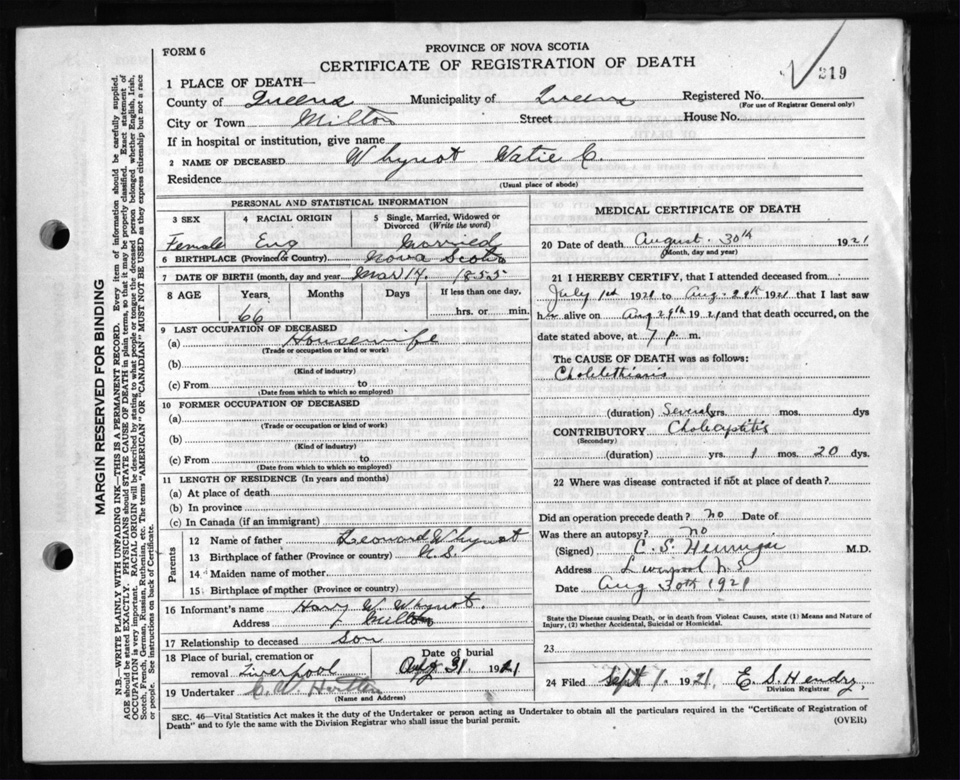 FORM 6
PROVINCE OF NOVA SCOTIA
CERTIFICATE OF REGISTRATION OF DEATH
219
1 PLACE OF DEATH—
County of Queens Municipality of Queens Registered No.
(For use of Registrar General only)
City or Town Milton Street House No.
If in hospital or institution, give name
2 NAME OF DECEASED Whynot Katie C.
Residence
(Usual place of abode)
PERSONAL AND STATISTICAL INFORMATION
3 SEX 4 RACIAL ORIGIN 5 Single, Married, Widowed or Divorced (Write the word)
Female Eng Married
6 BIRTHPLACE (Province or Country) Nova Scotia
7 DATE OF BIRTH (month, day and year) Mar 14. 1855
8 AGE Years Months Days If less than one day,
66 hrs. or min.
9 LAST OCCUPATION OF DECEASED
(a) Housewife
(Trade or occupation or kind or work)
(b)
(Kind of industry)
(c) From to
(Date from which to which so employed)
10 FORMER OCCUPATION OF DECEASED
(a)
(Trade or occupation or kind of work)
(b)
(Kind of industry)
(c) From to
(Date from which to which so employed)
11 LENGTH OF RESIDENCE (In years and months)
(a) At place of death
(b) In province
(c) In Canada (if an immigrant)
Parents
12 Name of father Leonard Whynot
13 Birthplace of father (Province or country) N.S.
14 Maiden name of mother
15 Birthplace of mother (Province or country)
16 Informant's name Harry W. Whynot.
Address Milton
17 Relationship to deceased Son
18 Place of burial, cremation or removal Liverpool Date of burial Aug 31 1921
19 Undertaker
(Name and Address)
MEDICAL CERTIFICATE OF DEATH
20 Date of death August 30th 1921
(Month, day and year)
21 I HEREBY CERTIFY, that I attended deceased from
July 1st 1921 to Aug 29th 1921 that I last saw
her alive on Aug 29th 1921 and that death occurred, on
date stated above, at 7 p. m.
The CAUSE OF DEATH was as follows:
Cholelithiasis
(duration) Several yrs. mos. dys
CONTRIBUTORY
(Secondary)
(duration) yrs. 1 mos. 20 dys.
22 Where was disease contracted if not at place of death?
Did an operation precede death? no Date of
Was there an autopsy? no
(Signed) C. S. M.D.
Address Liverpool N.S
Date Aug 30th 1921
State the Disease causing Death, or in death from Violent Causes, state (1) Means and Nature of
Injury, (2) whether Accidental, Suicidal or Homicidal.
23
24 Filed Sept 1. 1921. E. S. Hendry,
Division Registrar
SEC. 46—Vital Statistics Act makes it the duty of the Undertaker or person acting as Undertaker to obtain all the particulars required in the "Certificate of Registration of
Death" and to fyle the same with the Division Registrar who shall issue the burial permit.
(OVER)
MARGIN RESERVED FOR BINDING
N.B.—WRITE PLAINLY WITH UNFADING INK—THIS IS A PERMANENT RECORD. Every item of information should be carefully supplied.
AGE should be stated EXACTLY. PHYSICIANS should STATE CAUSE OF DEATH in plain terms, so that it may be properly classified. Exact statement of
OCCUPATION is very important. RACIAL ORIGIN will be described by stating to what people or tongue the deceased person belonged whether English, Irish,
Scotch, French, German, Russian, Ruthenian, etc. The terms "AMERICAN" OR "CANADIAN" MUST NOT BE USED as they express citizenship but not a race
or people. See instructions on back of Certificate.